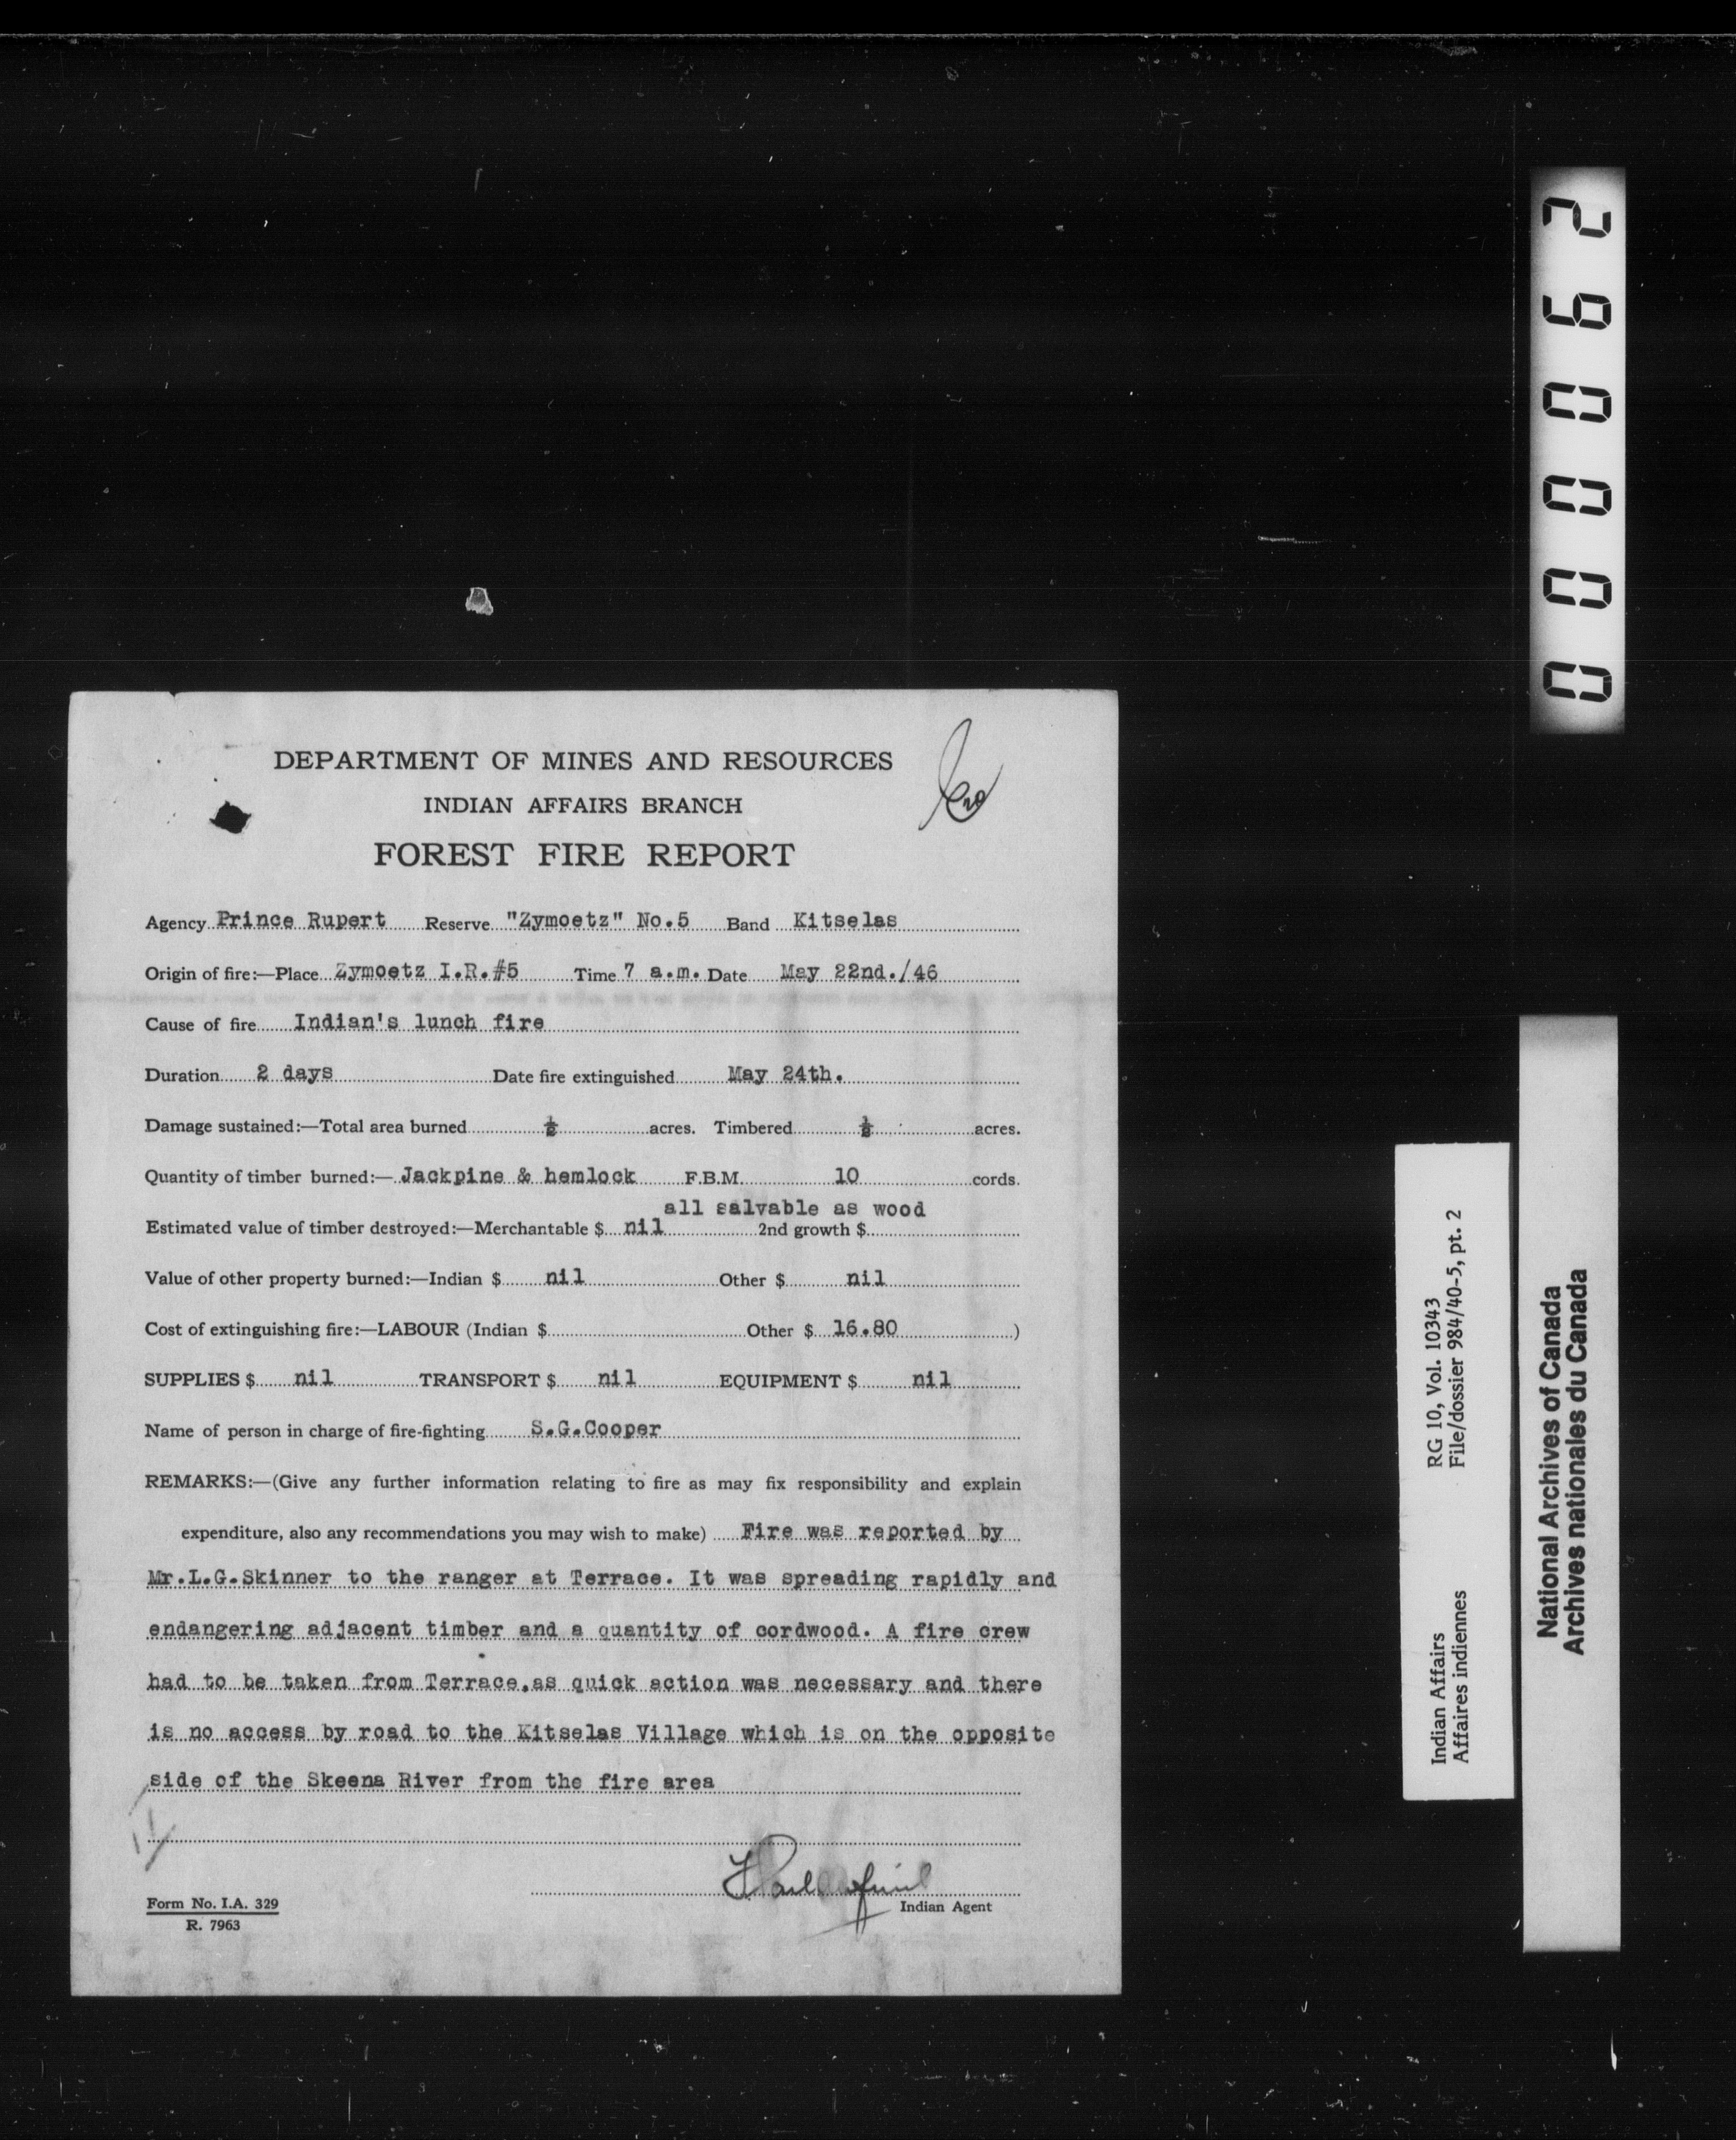 DEPARTMENT OF MINES AND RESOURCES
INDIAN AFFAIRS BRANCH
FOREST FIRE REPORT
Agency Prince Rupert Reserve "Zymoetz" No.5 Band Kitselas
Origin of fire:—Place Zymoetz I.R.#5 Time 7 a.m. Date May 22nd./46
Cause of fire Indian's lunch fire
Duration 2 days Date fire extinguished May 24th.
Damage sustained:—Total area burned ½ acres. Timbered ½ acres.
Quantity of timber burned:— Jackpine & hemlock F.B.M. 10 cords.
all salvable as wood
Estimated value of timber destroyed:—Merchantable $ nil 2nd growth $
Value of other property burned:—Indian $ nil Other $ nil
Cost of extinguishing fire:—LABOUR (Indian $ Other $ 16.80 )
SUPPLIES $ nil TRANSPORT $ nil EQUIPMENT $ nil
Name of person in charge of fire-fighting S.G.Cooper
REMARKS:—(Give any further information relating to fire as may fix responsibility and explain
expenditure, also any recommendations you may wish to make) Fire was reported by
Mr.L.G.Skinner to the ranger at Terrace. It was spreading rapidly and
endangering adjacent timber and a quantity of cordwood. A fire crew
had to be taken from Terrace,as quick action was necessary and there
is no access by road to the Kitselas Village which is on the opposite
side of the Skeena River from the fire area
Indian Agent
Form No. I.A. 329
R. 7963
000062
Indian Affairs RG 10, Vol. 10343
Affaires indiennes File/dossier 984/40-5, pt. 2
National Archives of Canada
Archives nationales du Canada